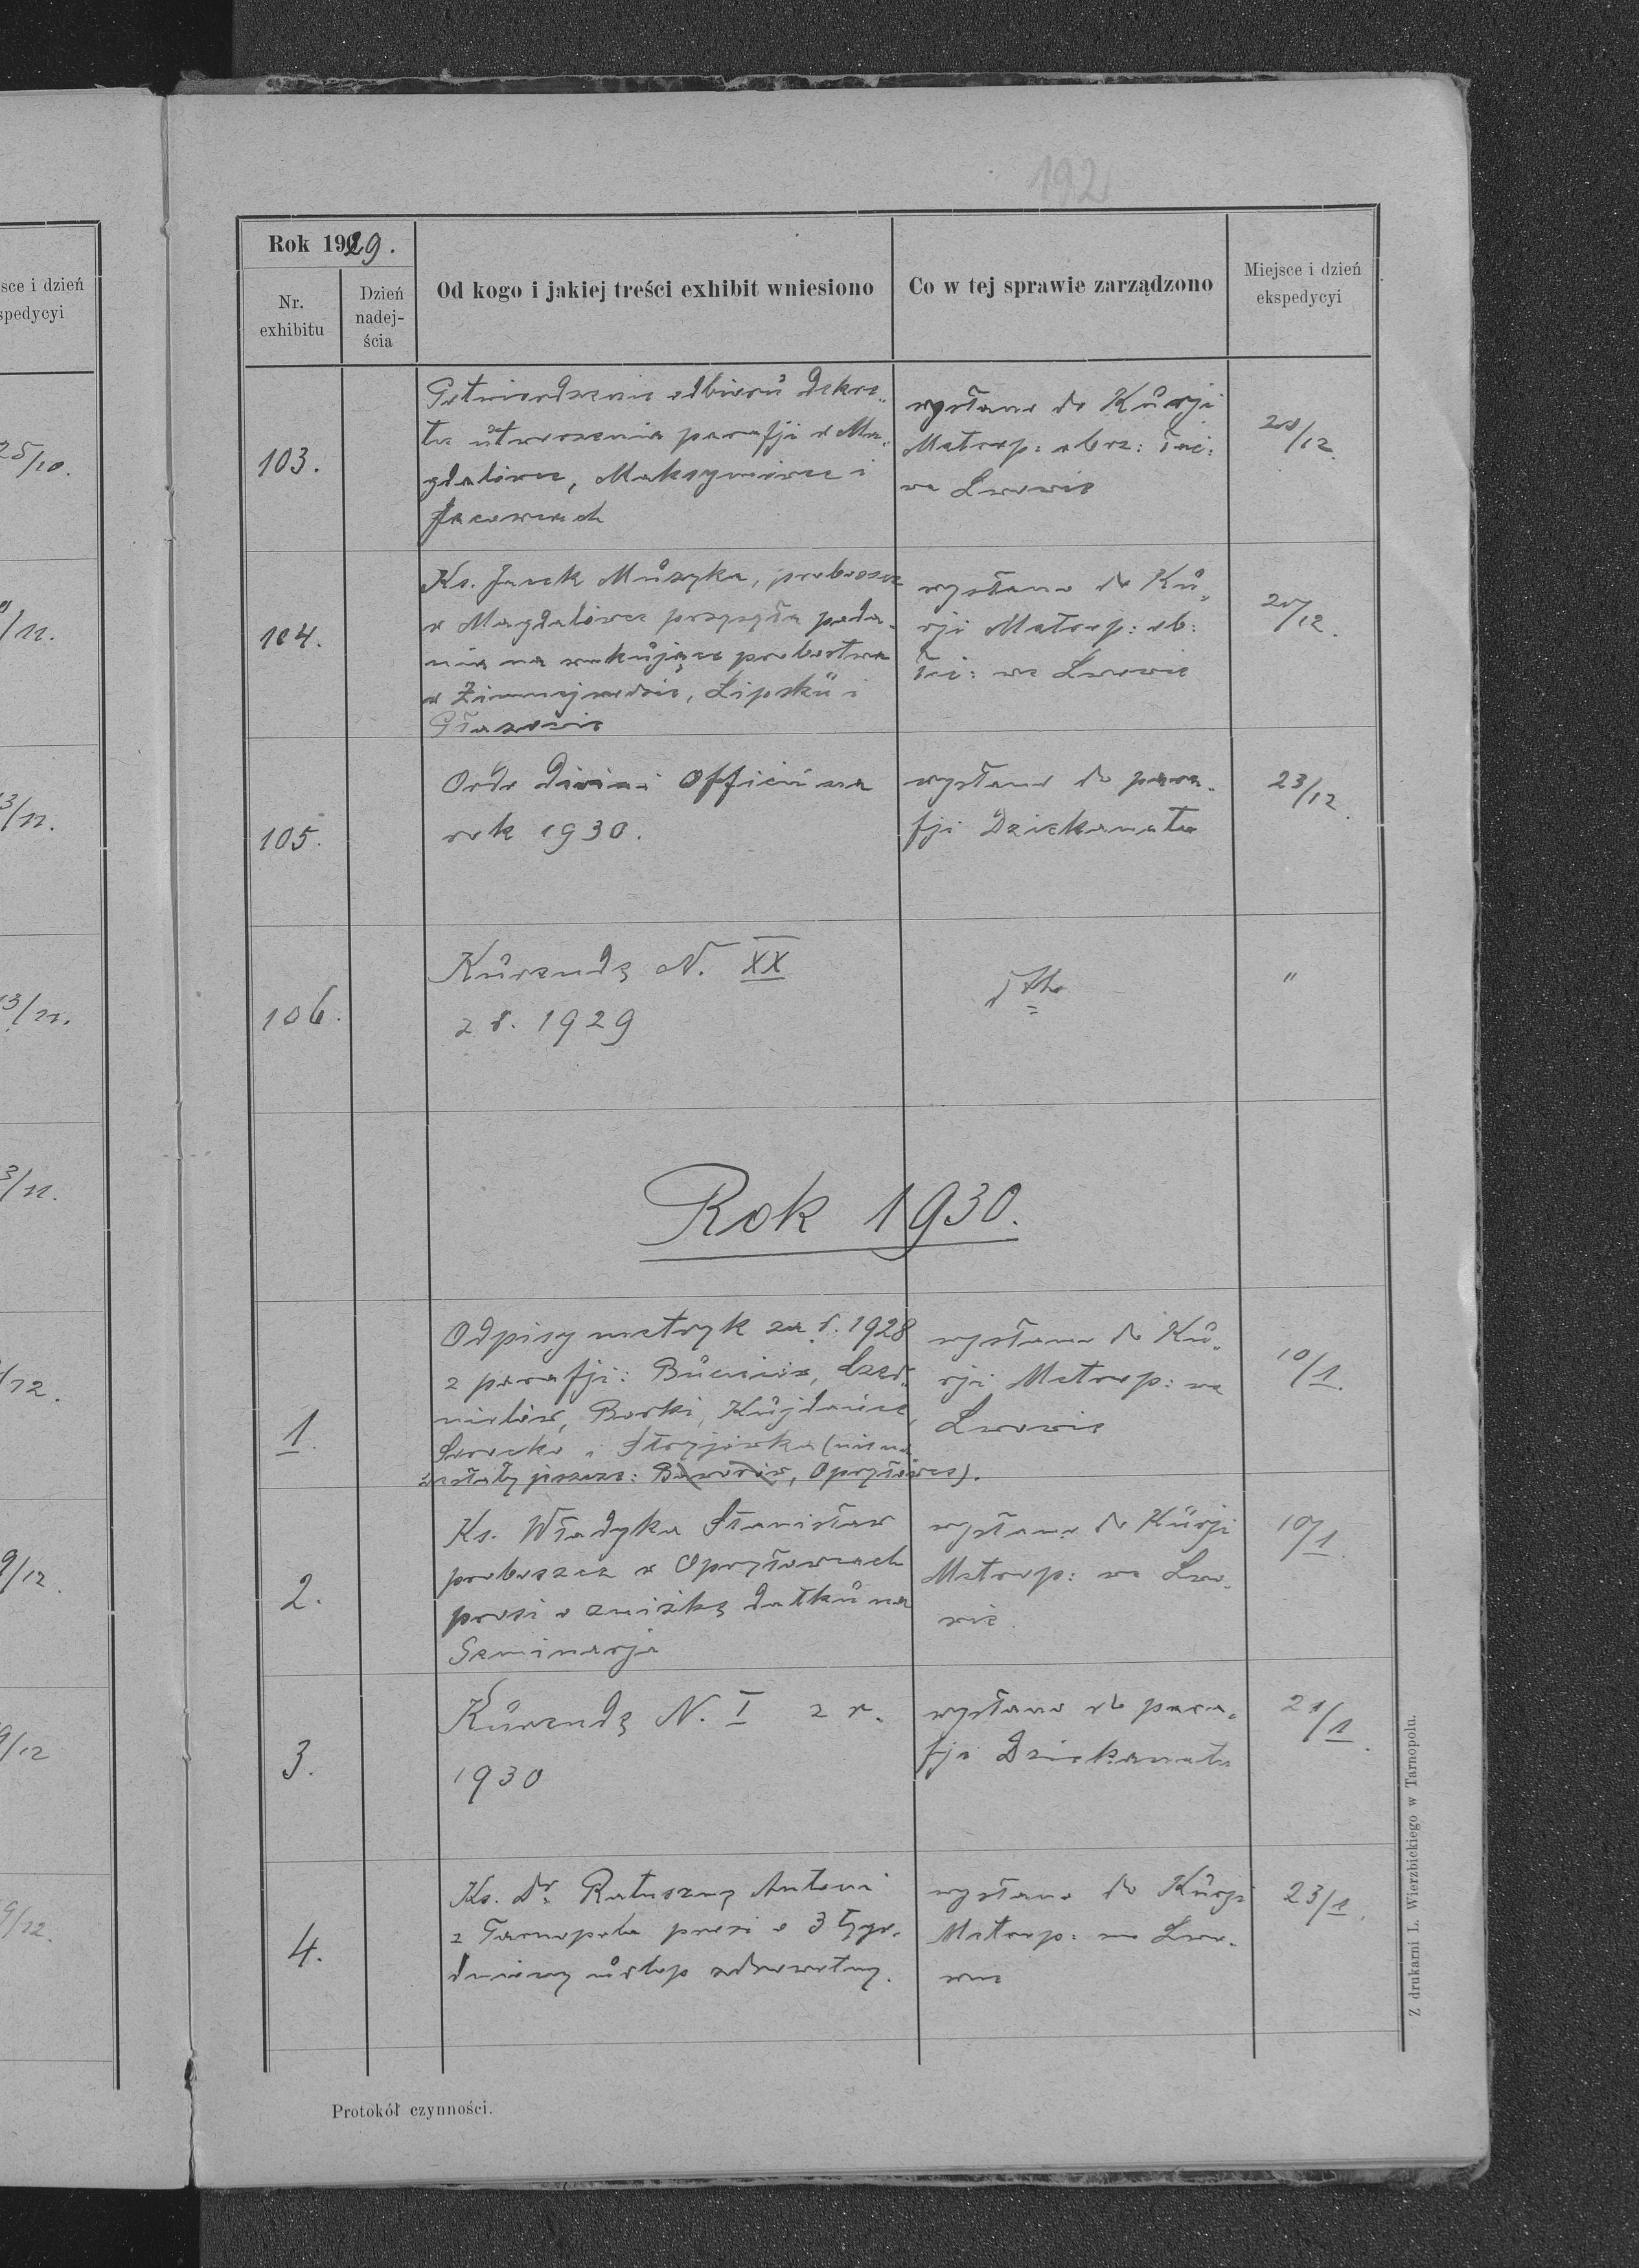 192
sce i dzień
spedycyi
25/10.
/11.
3/11.
3/11.
3/11.
/12.
9/12.
9/12
9/12.
Rok 1929.
Nr.
exhibitu
Dzień
nadej-
ścia
Od kogo i jakiej treści exhibit wniesiono
Co w tej sprawie zarządzono
Miejsce i dzień
ekspedycyi
103.
Potwierdzenie odbioru dekre„
tu utworzenia parafji w Ma„
gdalówce, Maksymówce i
Jacowcach
wysłano do Kurji
Metrop: obrz: łać:
we Lwowie
20/12.
104.
Ks. Jacek Muzyka, proboszcz
w Magdalówce przysyła poda„
nia na wakujące probostwa
w Zimnejwodzie, Lipsku i
wysłano do Ku„
rji Metrop: ob:
łać: we Lwowie
20/12.
105.
Ordo divini Officii na
rok 1930.
wysłano do para„
fji Dziekanatu
23/12.
106.
Kurendę N. XX
z r. 1929
"
Rok 1930.
1.
Odpisy metryk za r. 1928
z parafji: Bucniów, Czer„
nielów, Borki, Kujdańce,
Sorocko i Stryjówka (nie na
desłały jeszcze: Baworów, Opryłowce).
wysłano do Ku„
rji Metrop: we
Lwowie
10/1.
2.
Ks. Władyka Stanisław
proboszcz w Opryłowcach
prosi o zniżkę datku na
Seminarja
wysłano do Kurji
Metrop: we Lwo„
wie.
10/1.
3.
Kurendę N. I z r.
1930
wysłano do para„
fji Dziekanatu
21/1.
4.
Ks. Dr. Ratuszny Antoni
z Tarnopola prosi o 3 tygo„
dniowy urlop zdrowotny.
wysłano do Kurji
Metrop: we Lwo„
wie
23/1.
Protokół czynności.
Z drukarni L. Wierzbickiego w Tarnopolu.